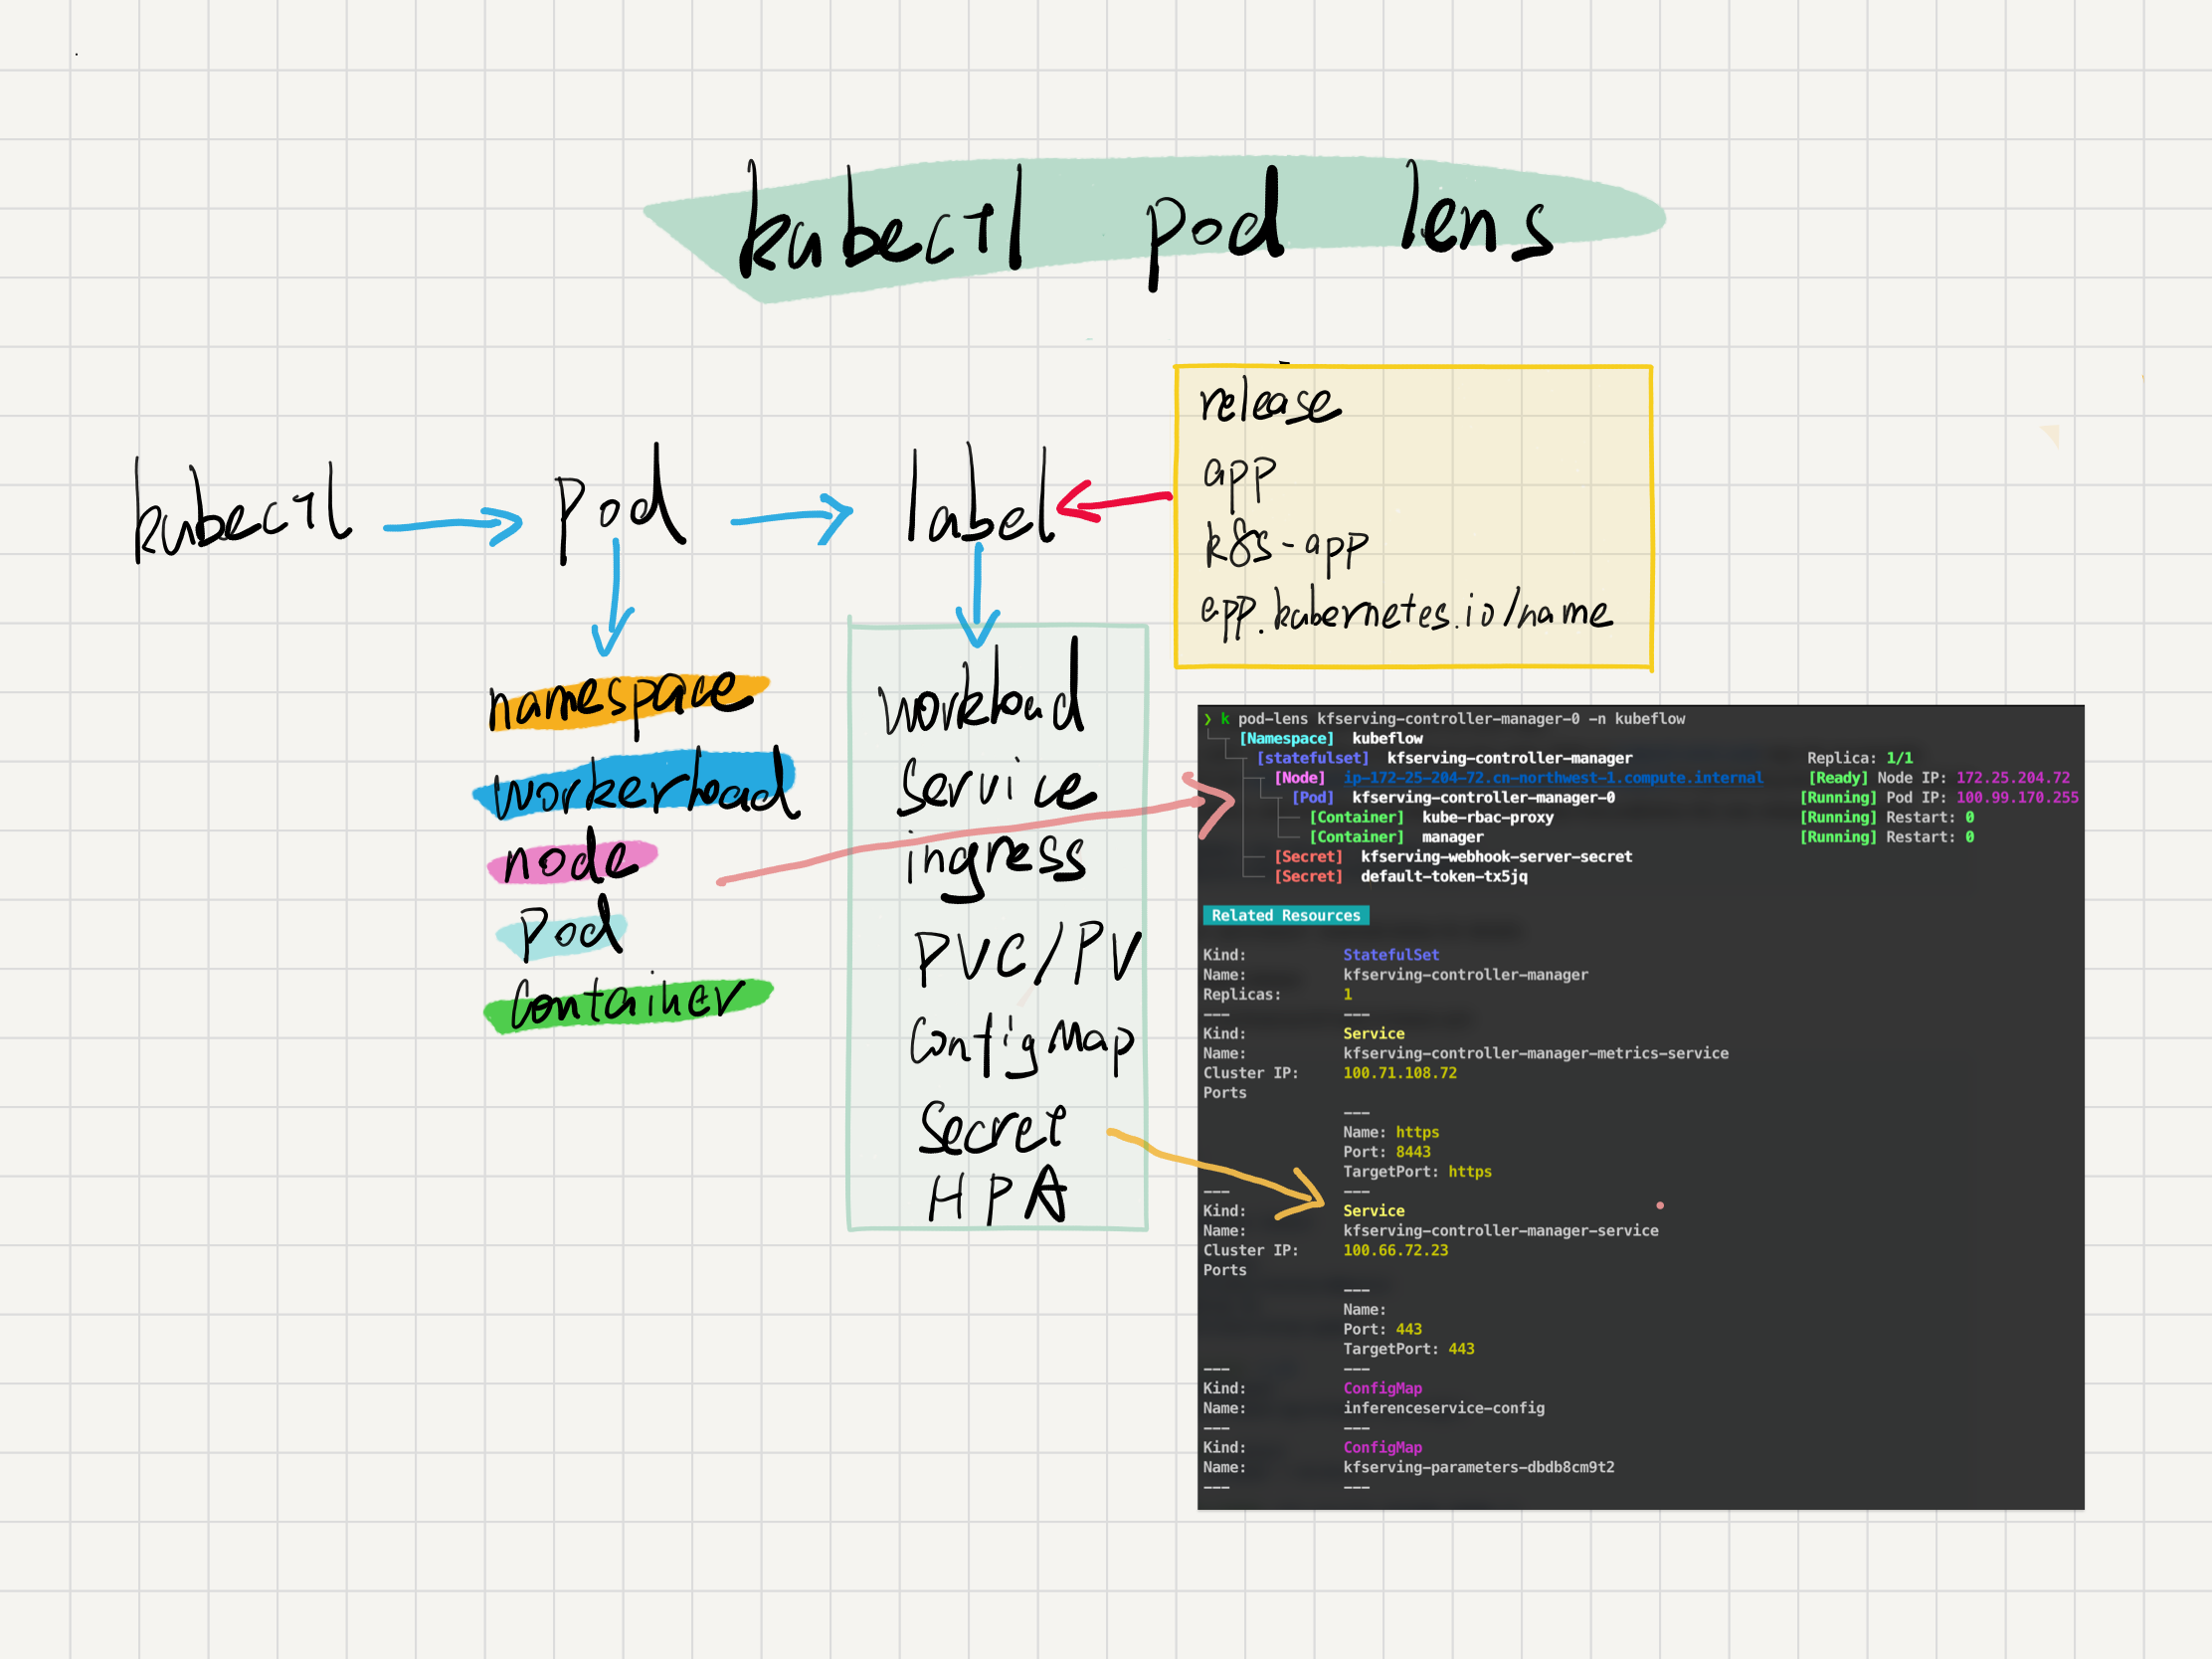 kubectl pod lens
kubectl
Pod
label
release
app
k8s-app
app.kubernetes.io/name
namespace
workerload
node
Pod
Container
workload
Service
ingress
PVC/PV
ConfigMap
Secret
HPA
❯ k pod-lens kfserving-controller-manager-0 -n kubeflow
[Namespace] kubeflow
[statefulset] kfserving-controller-manager Replica: 1/1
[Node] ip-172-25-204-72.cn-northwest-1.compute.internal [Ready] Node IP: 172.25.204.72
[Pod] kfserving-controller-manager-0 [Running] Pod IP: 100.99.170.255
[Container] kube-rbac-proxy [Running] Restart: 0
[Container] manager [Running] Restart: 0
[Secret] kfserving-webhook-server-secret
[Secret] default-token-tx5jq
Related Resources
Kind: StatefulSet
Name: kfserving-controller-manager
Replicas: 1
--- ---
Kind: Service
Name: kfserving-controller-manager-metrics-service
Cluster IP: 100.71.108.72
Ports
---
Name: https
Port: 8443
TargetPort: https
--- ---
Kind: Service
Name: kfserving-controller-manager-service
Cluster IP: 100.66.72.23
Ports
---
Name:
Port: 443
TargetPort: 443
--- ---
Kind: ConfigMap
Name: inferenceservice-config
--- ---
Kind: ConfigMap
Name: kfserving-parameters-dbdb8cm9t2
--- ---